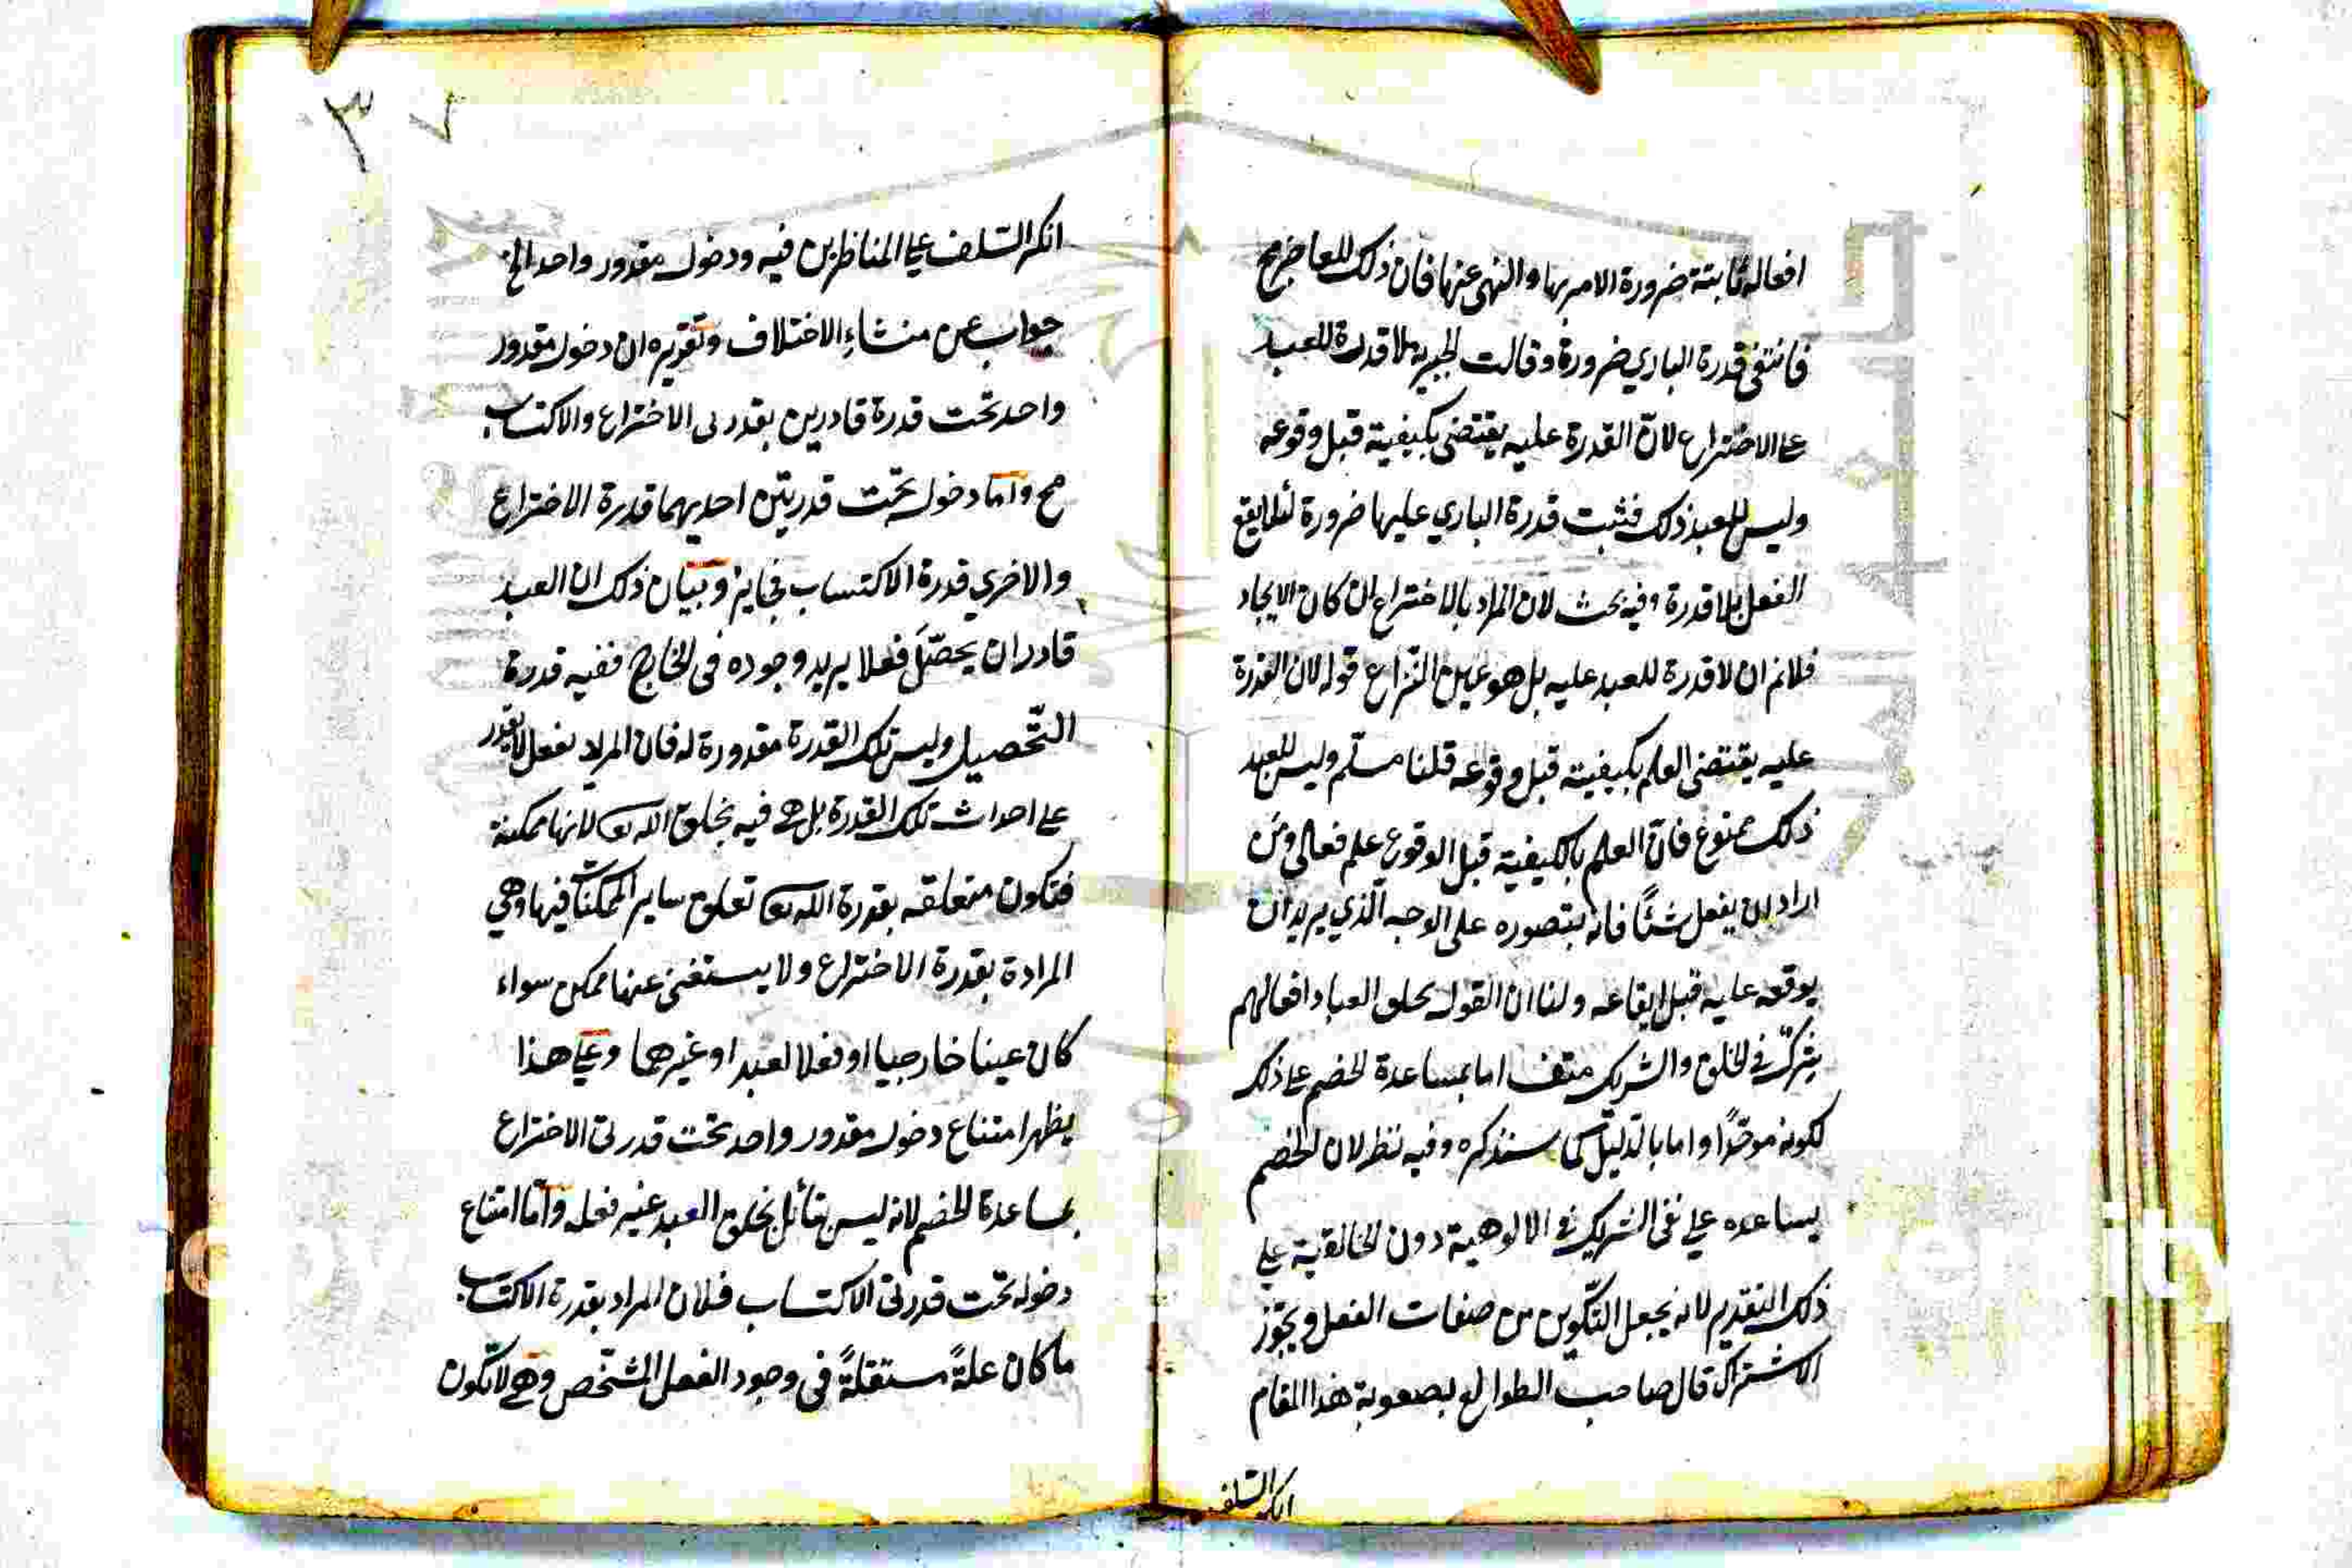 افعاله ثابتة ضرورة الامر بها والنهى عنها فان ذلك للعاجز مح
فانتفى قدرة الباري ضرورة وقالت الجبرية لا قدرة للعبد
على الاختراع لان القدرة عليه يقتضى بكيفية قبل وقوعه
وليس للعبد ذلك فثبت قدرة الباري عليها ضرورة لئلا يقع
الفعل بلا قدرة وفيه بحث لان المراد بالاختراع ان كان الايجاد
فلانم ان لا قدرة للعبد عليه بل هو عين النزاع قوله لان القدرة
عليه يقتضى العلم بكيفيته قبل وقوعه قلنا مسلم وليس للعبد
ذلك ممنوع فان العلم بالكيفية قبل الوقوع علم فعالى ومن
اراد ان يفعل شئًا فانه يتصوره على الوجه الّذي يريد ان
يوقعه عليه قبل ايقاعه ولنا ان القول بخلق العباد افعالهم
يشرك في الخلق والشريك منتف اما بمساعدة الخصم على ذلك
لكونه موحّدًا واما بالدليل كما سنذكره وفيه نظر لان الخصم
يساعده على نفى الشريك في الالوهية دون الخالقية على
ذلك التقدير لانه يجعل التكوين من صفات الفعل ويجوّز
الاشتراك قال صاحب الطوالع لصعوبة هذا المقام
انكر السلف
٣ ٧
انكر السّلف على المناظرين فيه ودخول مقدور واحد الخ
جواب عن منشاءِ الاختلاف وتقريره ان دخول مقدور
واحد تحت قدرة قادرين بقدرتى الاختراع والاكتساب
مح وامّا دخوله تحت قدرتين احديهما قدرة الاختراع
والاخري قدرة الاكتساب فجايز وبيان ذلك ان العبد
قادر ان يحصّلَ فعلا يريد وجوده فى الخارج ففيه قدرة
التّحصيل وليس تلك القدرة مقدورة له فان المراد بفعل لا يقدر
على احداث تلك القدرة بل هى فيه بخلق الله تعا لانها ممكنة
فتكون متعلقه بقدرة الله تعا تعلق ساير الممكنات فيها وهي
المرادة بقدرة الاختراع ولا يستغنى عنها ممكن سواء
كان عينا خارجيا او فعلا لعبد او غيرهما وعلى هذا
يظهر امتناع دخول مقدور واحد تحت قدرتى الاختراع
بمساعدة الخصم لانه ليس بقائل بخلق العبد غير فعله وامّا امتناع
دخوله تحت قدرتى الاكتساب فلان المراد بقدرة الاكتساب
ما كان علةً مستقلةً فى وجود الفعل المشّخص وهى لا تكون